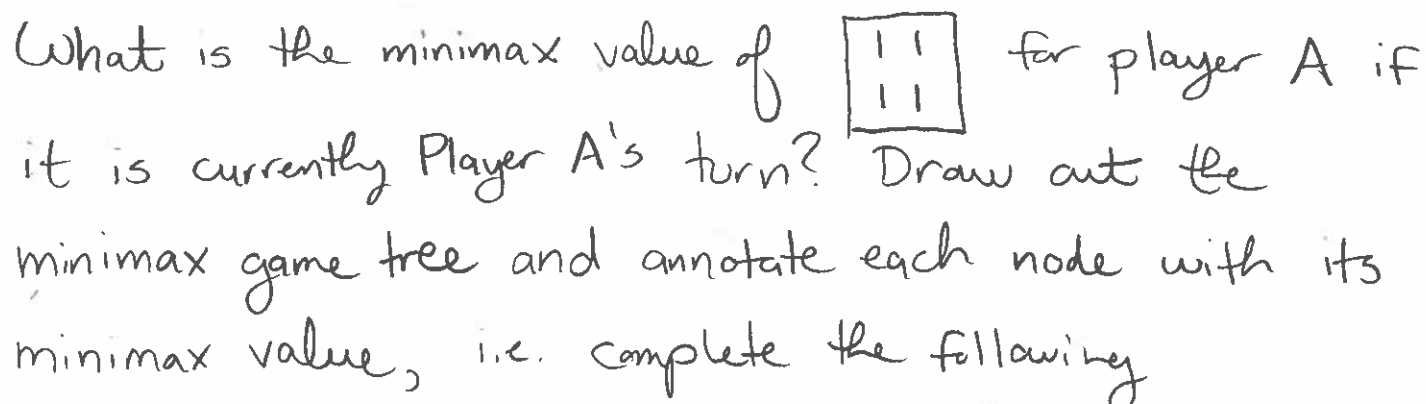 What is the minimax value of | | | | for player A if
it is currently Player A's turn? Draw out the
minimax game tree and annotate each node with its
minimax value, i.e. complete the following